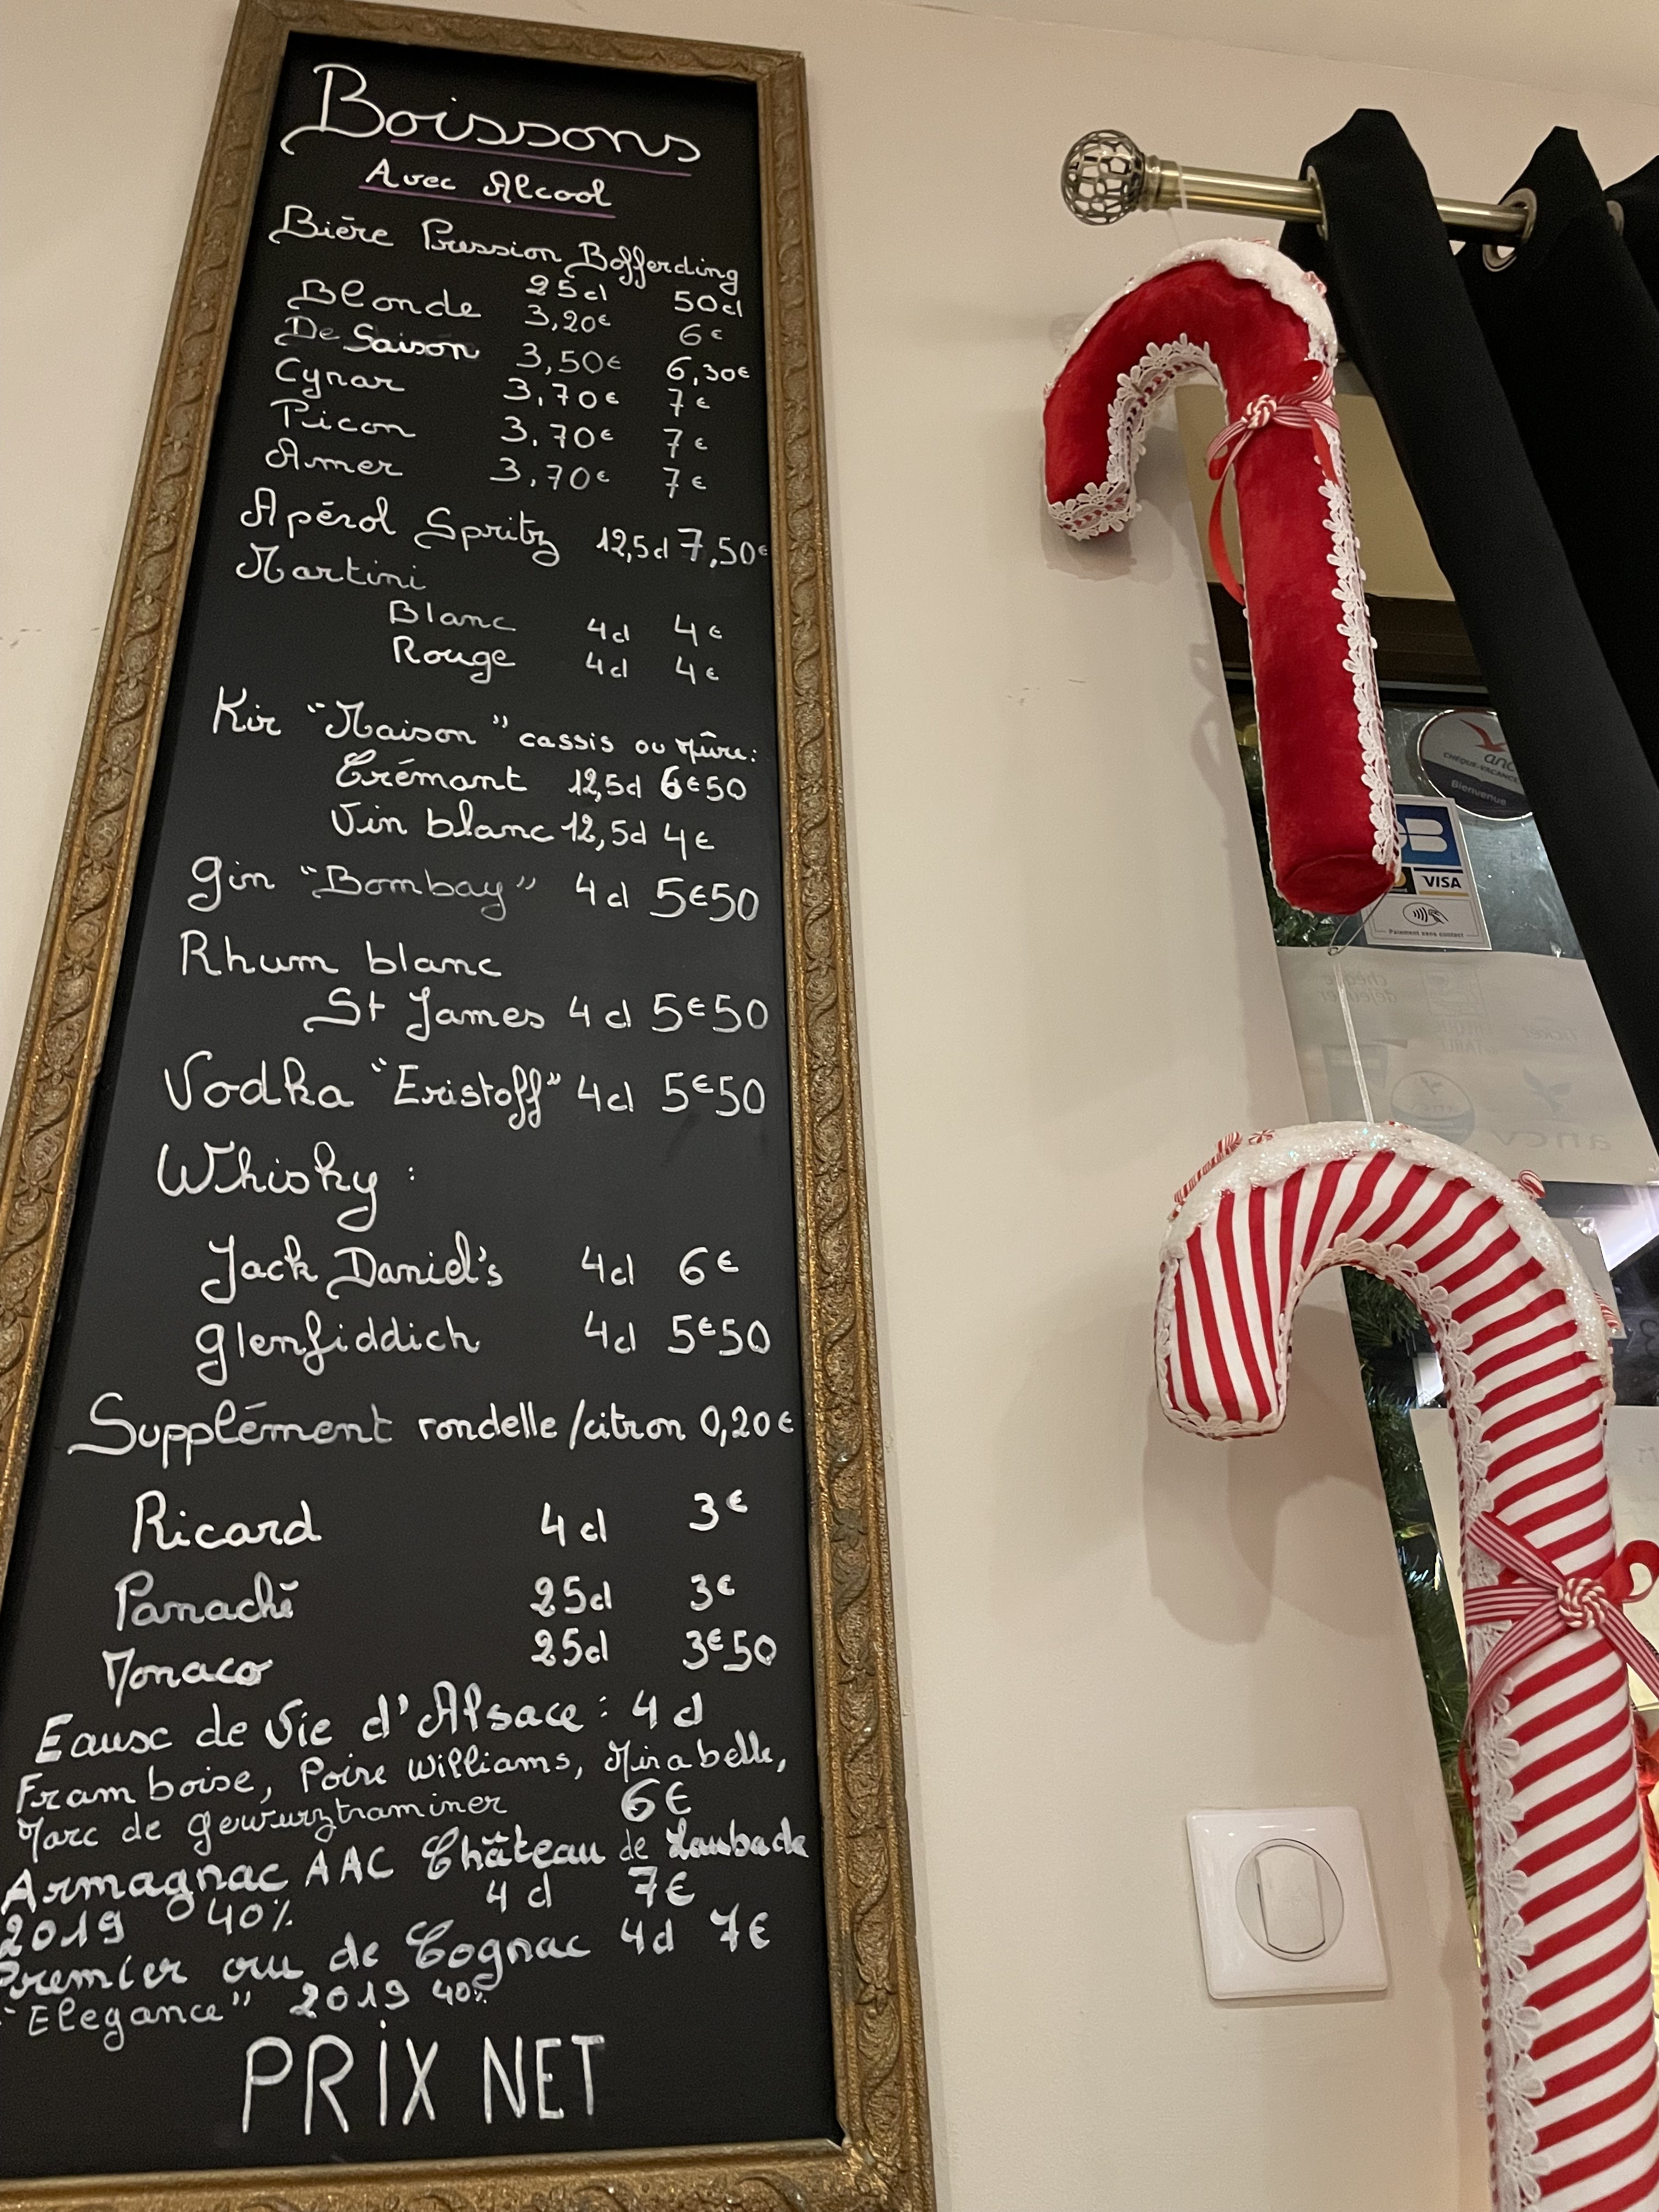 Boissons
Avec Alcool
Bière Pression Bofferding
25cl 50cl
Blonde 3,20€ 6€
De Saison 3,50€ 6,30€
Cynar 3,70€ 7€
Picon 3,70€ 7€
Amer 3,70€ 7€
Apérol Spritz 12,5cl 7,50€
Martini
Blanc 4cl 4€
Rouge 4cl 4€
Kir "Maison" cassis ou mûre:
Crémant 12,5cl 6€50
Vin blanc 12,5cl 4€
Gin "Bombay" 4cl 5€50
Rhum blanc
St James 4cl 5€50
Vodka "Eristoff" 4cl 5€50
Whisky :
Jack Daniel's 4cl 6€
Glenfiddich 4cl 5€50
Supplément rondelle/citron 0,20€
Ricard 4cl 3€
Panaché 25cl 3€
Monaco 25cl 3€50
Eaux de Vie d'Alsace : 4cl
Framboise, Poire Williams, Mirabelle,
Marc de gewurztraminer 6€
Armagnac AAC Château de Laubade
2019 40% 4cl 7€
Premier cru de Cognac 4cl 7€
"Elegance" 2019 40%
PRIX NET
Bienvenue
VISA
Paiement sans contact
chèque
déjeuner
ancv